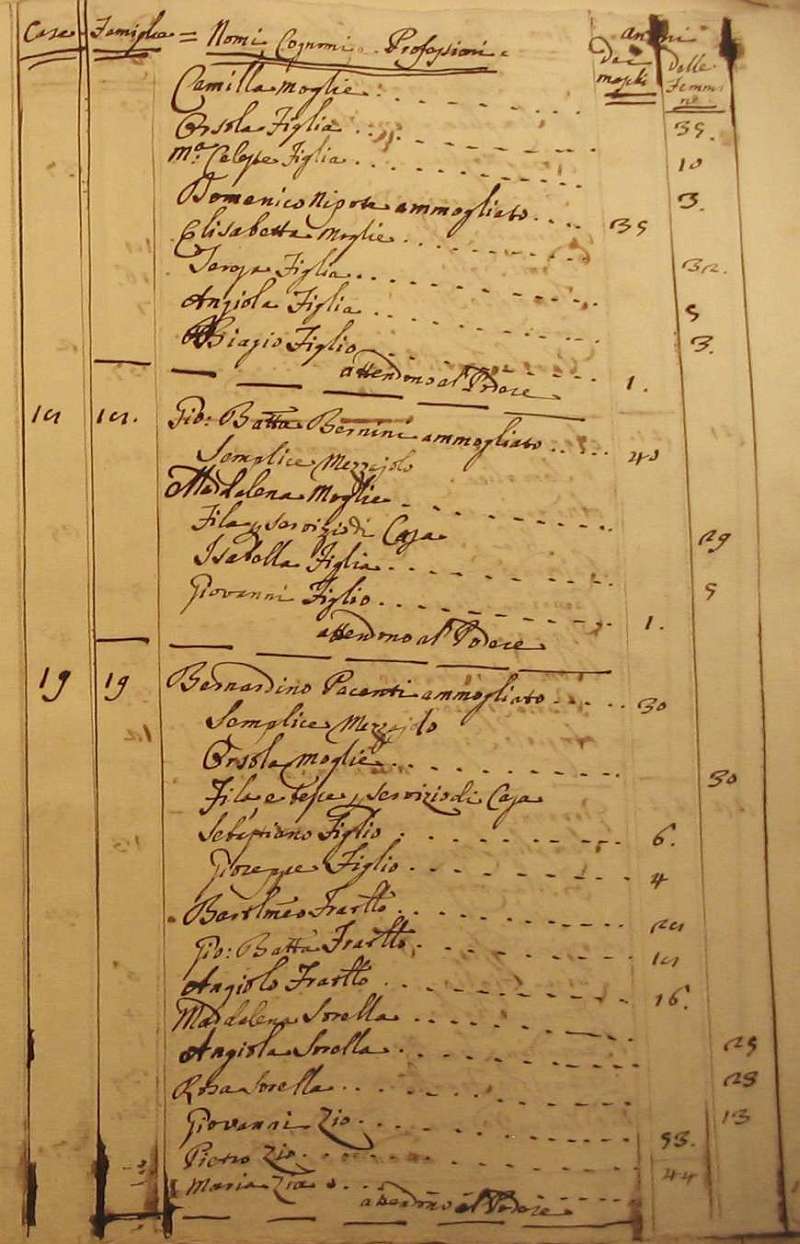 Case Famiglie = Nomi, Cognomi, e Professioni = anni
dei maschi delle Femmine
Camilla Moglie 39.
Orsola Figlia 10
Ma. Celeste Figlia 3.
Domenico Nipote ammogliato 35
Elisabetta Moglie 32.
Teresa Figlia 5
Angiola Figlia 3.
Biagio Figlio 1.
attendono al Podere
18 18. Gio: Batta Bernini ammogliato 40
Semplice Mezzajolo
Maddalena Moglie 29
Fila, e servizio di Casa
Isabella Figlia 5
Giovanni Figlio 1.
attendono al Podere
19 19 Bernardino Pacenti ammogliato 30
Semplice Mezzajolo
Orsola Moglie 30
Fila e tesse, e servizio di Casa
Sebastiano Figlio 6.
Gioseppe Figlio 4
Bartolmeo Fratello
Gio: Batta Fratello
Angiolo Fratello 16.
Maddalena Sorella 25
Angiola Sorella 23
Rosa Sorella 13
Giovanni Zio 53.
Pietro Zio 44
Maria Zia
attendono al Podere